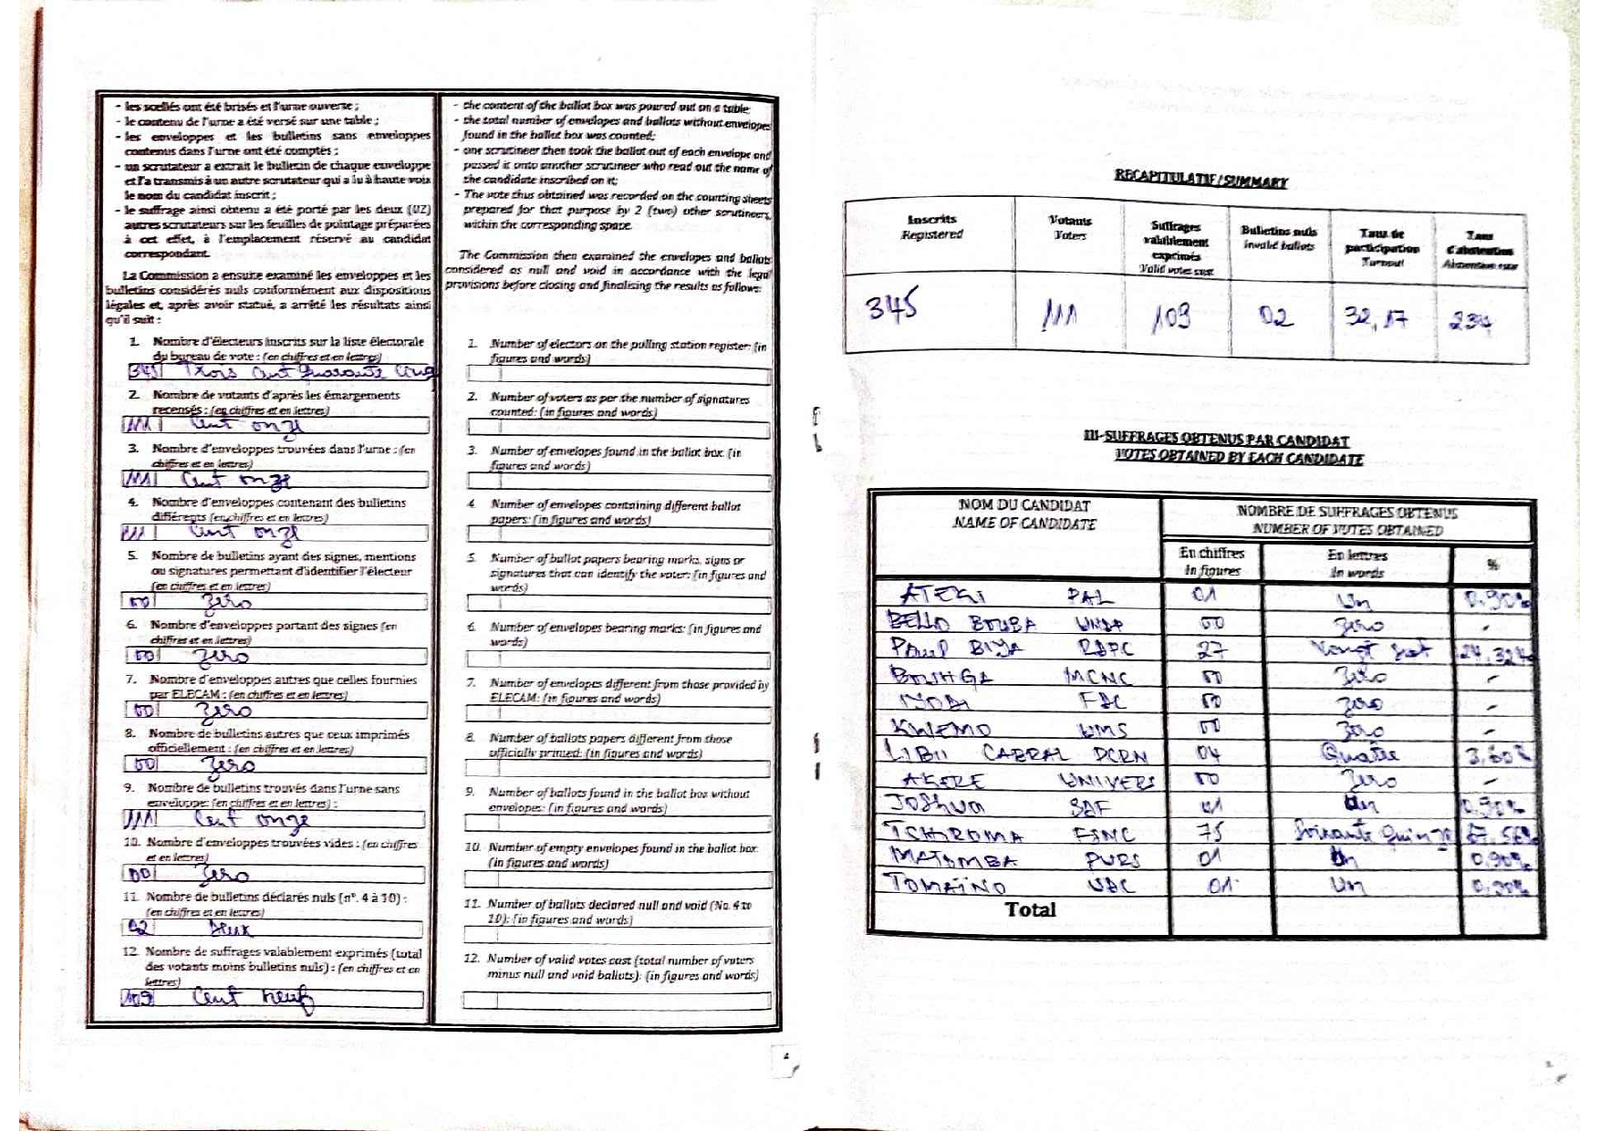 - les scellés ont été brisés et l'urne ouverte ;
- le contenu de l'urne a été versé sur une table ;
- les enveloppes et les bulletins sans enveloppes
contenus dans l'urne ont été comptés ;
- un scrutateur a extrait le bulletin de chaque enveloppe
et l'a transmis à un autre scrutateur qui a lu à haute voix
le nom du candidat inscrit ;
- le suffrage ainsi obtenu a été porté par les deux (02)
autres scrutateurs sur les feuilles de pointage préparées
à cet effet, à l'emplacement réservé au candidat
correspondant.
La Commission a ensuite examiné les enveloppes et les
bulletins considérés nuls conformément aux dispositions
légales et, après avoir statué, a arrêté les résultats ainsi
qu'il suit :
1. Nombre d'électeurs inscrits sur la liste électorale
du bureau de vote : (en chiffres et en lettres)
345 Trois cent quarante cinq
2. Nombre de votants d'après les émargements
recensés : (en chiffres et en lettres)
111 Cent onze
3. Nombre d'enveloppes trouvées dans l'urne : (en
chiffres et en lettres)
111 Cent onze
4. Nombre d'enveloppes contenant des bulletins
différents (en chiffres et en lettres)
111 Cent onze
5. Nombre de bulletins ayant des signes, mentions
ou signatures permettant d'identifier l'électeur
(en chiffres et en lettres)
00 Zero
6. Nombre d'enveloppes portant des signes (en
chiffres et en lettres)
00 Zero
7. Nombre d'enveloppes autres que celles fournies
par ELECAM : (en chiffres et en lettres)
00 Zero
8. Nombre de bulletins autres que ceux imprimés
officiellement : (en chiffres et en lettres)
00 Zero
9. Nombre de bulletins trouvés dans l'urne sans
enveloppe: (en chiffres et en lettres) :
111 Cent onze
10. Nombre d'enveloppes trouvées vides : (en chiffres
et en lettres)
00 Zero
11. Nombre de bulletins déclarés nuls (n°. 4 à 10) :
(en chiffres et en lettres)
02 Deux
12. Nombre de suffrages valablement exprimés (total
des votants moins bulletins nuls) : (en chiffres et en
lettres)
109 Cent neuf
- the content of the ballot box was poured out on a table;
- the total number of envelopes and ballots without envelopes
found in the ballot box was counted;
- one scrutineer then took the ballot out of each envelope and
passed it onto another scrutineer who read out the name of
the candidate inscribed on it;
- The vote thus obtained was recorded on the counting sheets
prepared for that purpose by 2 (two) other scrutineers,
within the corresponding space.
The Commission then examined the envelopes and ballots
considered as null and void in accordance with the legal
provisions before closing and finalising the results as follows:
1. Number of electors on the polling station register: (in
figures and words)
2. Number of voters as per the number of signatures
counted: (in figures and words)
3. Number of envelopes found in the ballot box: (in
figures and words)
4. Number of envelopes containing different ballot
papers: (in figures and words)
5. Number of ballot papers bearing marks, signs or
signatures that can identify the voter: (in figures and
words)
6. Number of envelopes bearing marks: (in figures and
words)
7. Number of envelopes different from those provided by
ELECAM: (in figures and words)
8. Number of ballots papers different from those
officially printed: (in figures and words)
9. Number of ballots found in the ballot box without
envelopes: (in figures and words)
10. Number of empty envelopes found in the ballot box:
(in figures and words)
11. Number of ballots declared null and void (No. 4 to
10): (in figures and words)
12. Number of valid votes cast (total number of voters
minus null and void ballots): (in figures and words)
RECAPITULATIF/SUMMARY
Inscrits Registered | Votants Voters | Suffrages valablement exprimés Valid votes cast | Bulletins nuls invalid ballots | Taux de participation Turnout | Taux d'abstention Abstention rate
345 | 111 | 109 | 02 | 32,17 | 234
III-SUFFRAGES OBTENUS PAR CANDIDAT
VOTES OBTAINED BY EACH CANDIDATE
NOM DU CANDIDAT
NAME OF CANDIDATE
NOMBRE DE SUFFRAGES OBTENUS
NUMBER OF VOTES OBTAINED
En chiffres En lettres %
In figures In words
ATEKI PAL 01 Un 0,90%
BELLO BOUBA UNDP 00 Zero -
Paul BIYA RDPC 27 Vingt sept 24,324
BOUHGA MCNC 00 Zero -
IYODI FDC 00 Zero -
KWEMO UMS 00 Zero -
LIBII CABRAL PCRN 04 Quatre 3,60%
AKERE UNIVERS 00 Zero -
JOSHUA SDF 01 Un 0,90%
TCHIROMA FSNC 75 Soixante Quinze 67,56%
MATOMBA PURS 01 Un 0,90%
TOMAÏNO UDC 01 Un 0,90%
Total